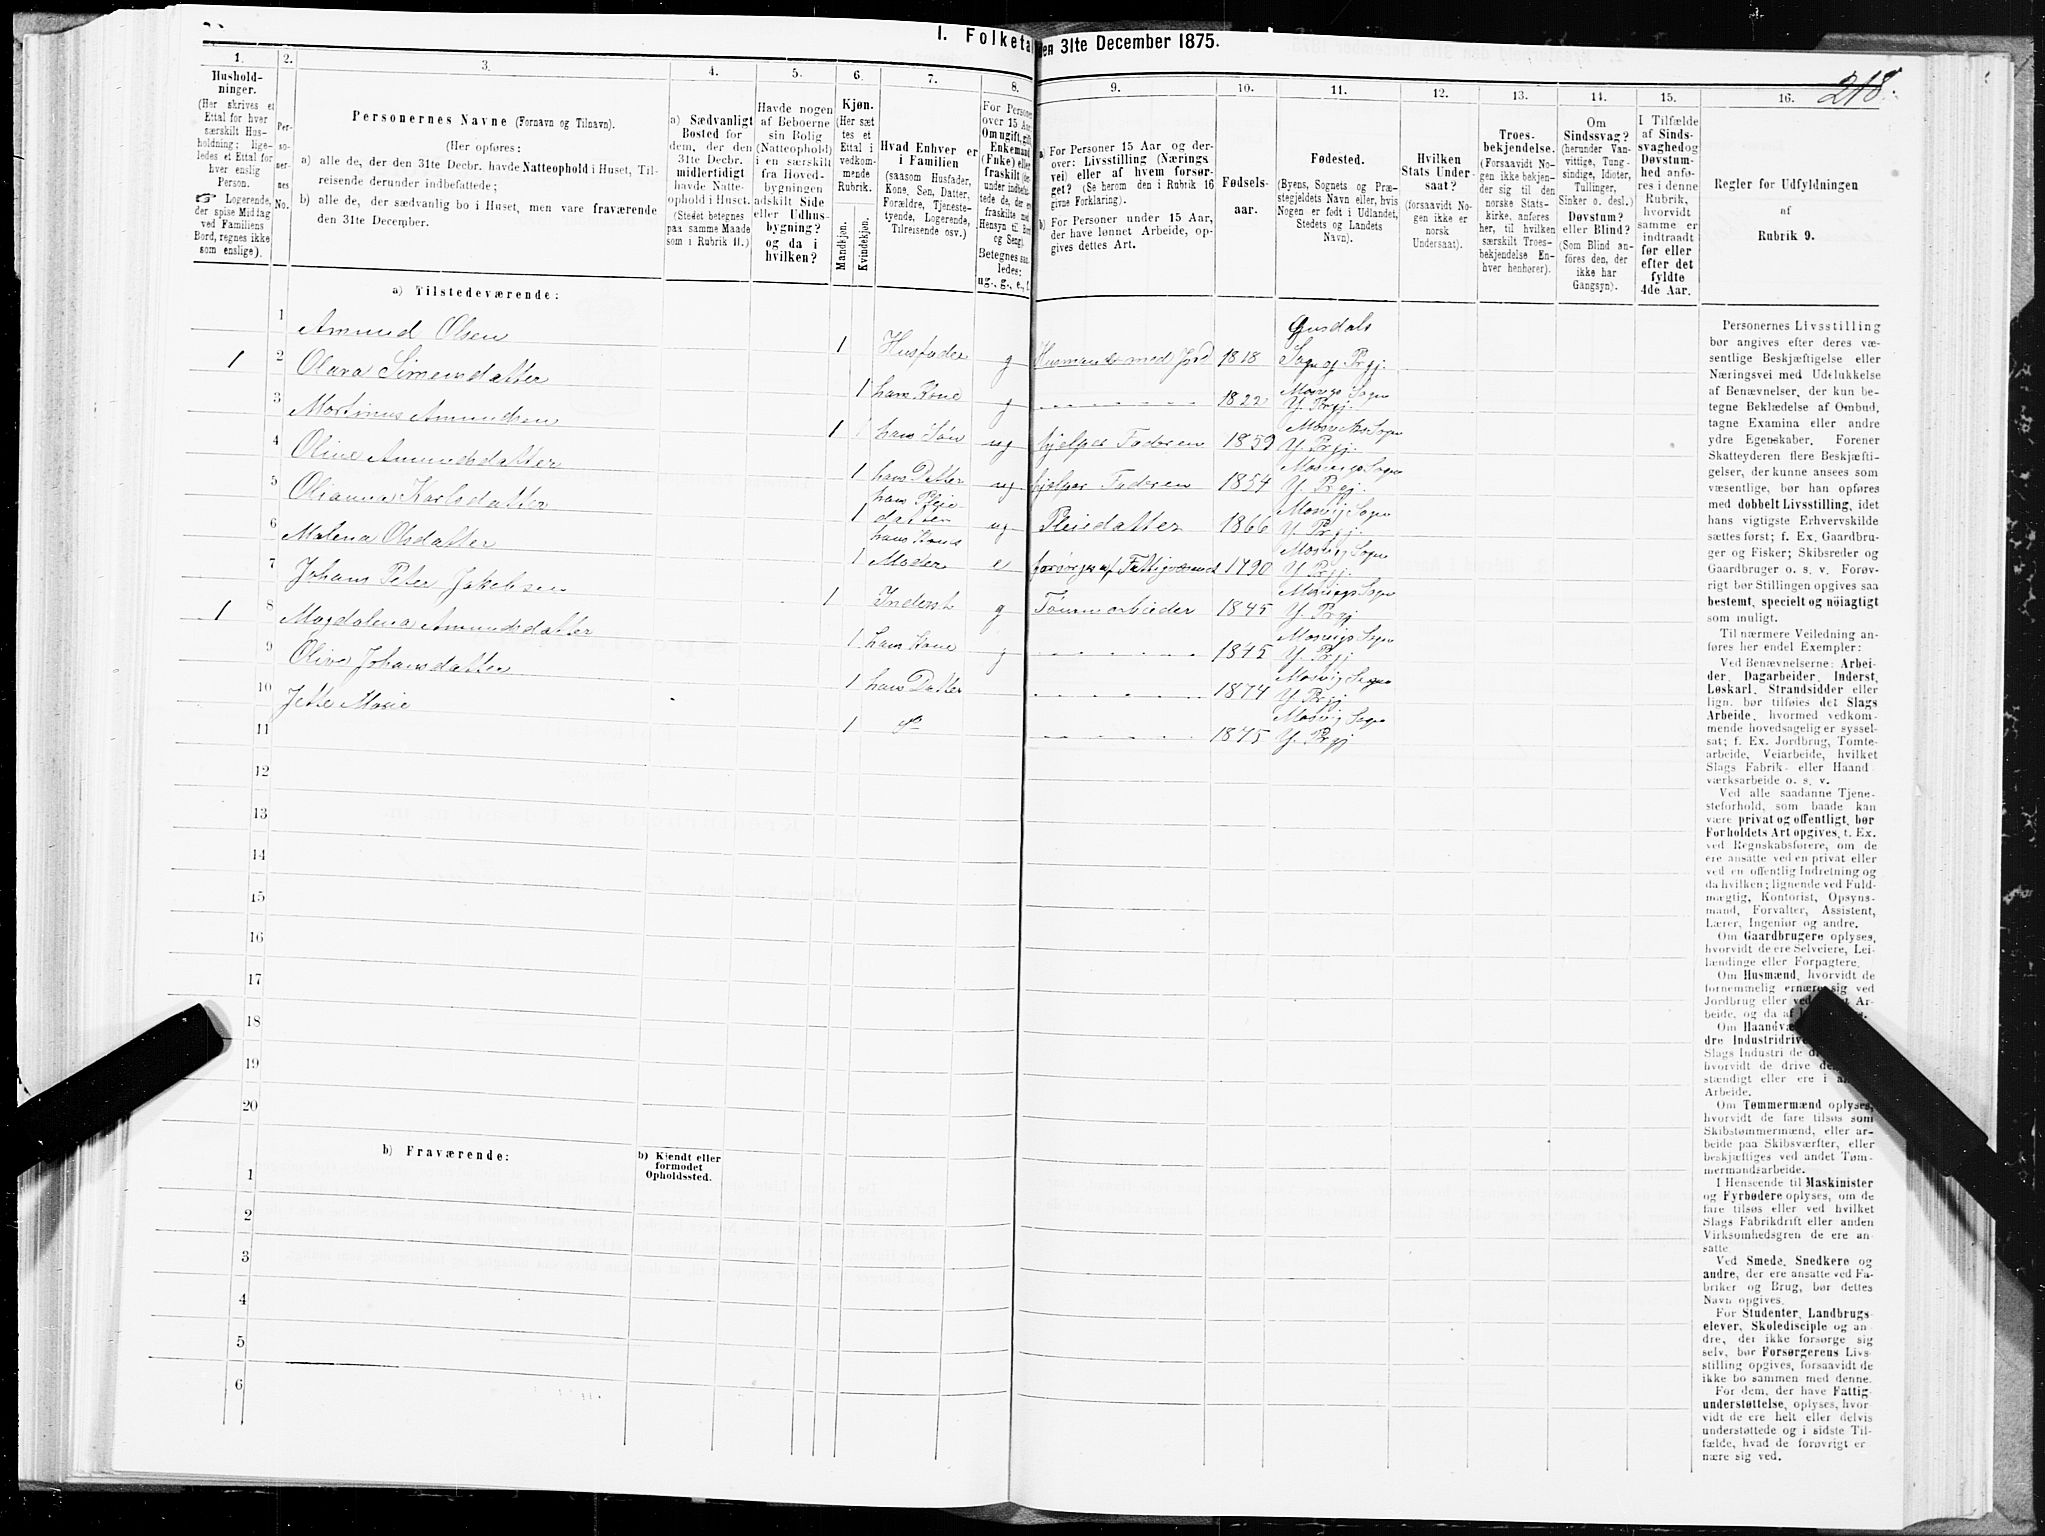 I. Folketa den 31te December 1875.
218.
1. 2. 3. 4. 5. 6. 7. 8. 9. 10. 11. 12. 13. 14. 15. 16.
Hushold-
ninger.
(Her skrives et
Ettal for hver
særskilt Hus-
holdning; lige-
ledes et Ettal for
hver enslig
Person.
☞ Logerende,
der spise Middag
ved Familiens
Bord, regnes ikke
som enslige).
Per-
so-
ner-
nes
No.
Personernes Navne (Fornavn og Tilnavn).
(Her opføres:
a) alle de, der den 31te Decbr. havde Natteophold i Huset, Til-
reisende derunder indbefattede;
b) alle de, der sædvanlig bo i Huset, men vare fraværende
den 31te December.
a) Sædvanligt
Bosted for
dem, der den
31te Decbr.
midlertidigt
havde Natte-
ophold i Huset.
(Stedet betegnes
paa samme Maade
som i Rubrik 11.)
Havde nogen
af Beboerne
sin Bolig
(Natteophold)
i en særskilt
fra Hoved-
bygningen
adskilt Side
eller Udhus-
bygning?
og da i
hvilken?
Kjøn.
(Her sæt
tes et
Ettal i
vedkom-
mende
Rubrik.
Mandkjøn.
Kvindekjøn.
Hvad Enhver er
i Familien
(saasom Husfader,
Kone, Søn, Datter,
Forældre, Tjeneste-
tyende, Logerende,
Tilreisende osv.)
For Personer
over 15 Aar:
Om ugift, gift,
Enkemand
(Enke) eller
fraskilt (der-
under indbefat-
tede de, der ere
fraskilte med
Hensyn til Bord
og Seng).
Betegnes saa-
ledes:
ug., g., e., f.
a) For Personer 15 Aar og der-
over: Livsstilling (Nærings
vei) eller af hvem forsør-
get? (Se herom den i Rubrik 16
givne Forklaring).
b) For Personer under 15 Aar,
der have lønnet Arbeide, op-
gives dettes Art.
Fødsels-
aar.
Fødested.
(Byens, Sognets og Præ-
stegjeldets Navn eller, hvis
Nogen er født i Udlandet,
Stedets og Landets
Navn).
Hvilken
Stats Under-
saat?
(forsaavidt No-
gen ikke er
norsk
Undersaat).
Troes-
bekjendelse.
(Forsaavidt No-
gen ikke bekjen-
der sig til den
norske Stats-
kirke, anføres
her, til hvilken
særskilt Troes-
bekjendelse En-
hver henhører).
Om
Sindssvag?
(herunder Van-
vittige, Tung-
sindige, Idioter,
Tullinger,
Sinker o. desl.)
Døvstum?
eller Blind?
(Som Blind an-
föres den, der
ikke har
Gangsyn).
I Tilfælde
af Sinds-
svaghed og
Døvstum-
hed anfø-
res i denne
Rubrik,
hvorvidt
samme er
indtraadt
før eller
efter det
fyldte
4de Aar.
Regler for Udfyldningen
af
Rubrik 9.
a) Tilstedeværende:
1 Amund Olsen 1 Husfader g Husmand med Jord 1818 Gusdals Sogn og Prgj.
1 2 Olava Simensdatter 1 hans Kone g 1822 Mosvigs Sogn Y. Prgj.
3 Martinus Amundsen 1 hans Søn ug hjelper Faderen 1859 Mosviks Sogn Y. Prgj.
4 Oline Amundsdatter 1 hans Datter ug hjelper Faderen 1854 Mosvigs Sogn Y. Prgj.
5 Olianna Karlsdatter 1 hans Pleie datter ug Pleiedatter 1866 Mosvig Sogn Y. Prgj
6 Malena Olsdatter 1 hans Kones Moder e forsørges af Fattigvæsenet 1790 Mosvig Sogn Y. Prgj.
7 Johans Peter Jakobsen 1 Inderst g Tømmerarbeider 1845 Mosvigs Sogn Y. Prgj
1 8 Magdalena Amundsdatter 1 hans Kone g 1845 Mosvigs Sogn Y. Prgj
9 Olive Johansdatter 1 hans Datter 1874 Mosvig Sogn Y. Prgj
10 Jette Marie 1 do 1875 Mosvig Sogn Y. Prgj
11
12
13
14
15
16
17
18
19
20
b) Fraværende:
b) Kjendt eller
formodet
Opholdssted.
1
2
3
4
5
6
Personernes Livsstilling
bør angives efter deres væ-
sentlige Beskjæftigelse eller
Næringsvei med Udelukkelse
af Benævnelser, der kun be-
tegne Beklædelse af Ombud,
tagne Examina eller andre
ydre Egenskaber. Forener
Skatteyderen flere Beskjæfti-
gelser, der kunne ansees som
væsentlige, bør han opføres
med dobbelt Livsstilling, idet
hans vigtigste Erhvervskilde
sættes først; f. Ex. Gaardbru-
ger og Fisker; Skibsreder og
Gaardbruger o. s. v. Forøv-
rigt bør Stillingen opgives saa
bestemt, specielt og nöiagtigt
som muligt.
Til nærmere Veiledning an-
føres her endel Exempler:
Ved Benævnelserne: Arbei-
der, Dagarbeider, Inderst,
Løskarl, Strandsidder eller
lign. bør tilføies det Slags
Arbeide, hvormed vedkom-
mende hovedsagelig er syssel-
sat; f. Ex. Jordbrug, Tomte-
arbeide, Veiarbeide, hvilket
Slags Fabrik- eller Haand
værksarbeide o. s. v.
Ved alle saadanne Tjene-
steforhold, som baade kan
være privat og offentligt, bør
Forholdets Art opgives, t. Ex.
ved Regnskabsførere, om de
ere ansatte ved en privat eller
ved en offentlig Indretning og
da hvilken; lignende ved Fuld-
mægtig, Kontorist, Opsyns-
mand, Forvalter, Assistent,
Lærer, Ingeniør og andre.
Om Gaardbrugere oplyses,
hvorvidt de ere Selveiere, Lei-
lændinge eller Forpagtere.
Om Husmænd, hvorvidt de
fornemmelig ernære sig ved
Jordbrug eller ved Ar-
beide, og da af
Om Haandvæ
dre Industridrive
Slags Industri de d
hvorvidt de drive de
stændigt eller ere i a
Arbeide.
Om Tømmermænd oplyses,
hvorvidt de fare tilsøs som
Skibstømmermænd, eller ar-
beide paa Skibsværfter, eller
beskjæftiges ved andet Tøm-
mermandsarbeide.
I Henseende til Maskinister
og Fyrbødere oplyses, om de
fare tilsøs eller ved hvilket
Slags Fabrikdrift eller anden
Virksomhedsgren de ere an-
satte.
Ved Smede, Snedkere og
andre, der ere ansatte ved Fa-
briker og Brug, bør dettes
Navn opgives.
For Studenter, Landbrugs-
elever, Skoledisciple og an-
dre, der ikke forsørge sig
selv, bør Forsørgerens Livs-
stilling opgives, forsaavidt de
ikke bo sammen med denne.
For dem, der have Fattig-
understøttelse, oplyses, hvor-
vidt de ere helt eller delvis
understøttede og i sidste Til-
fælde, hvad de forøvrigt er-
nære sig ved.